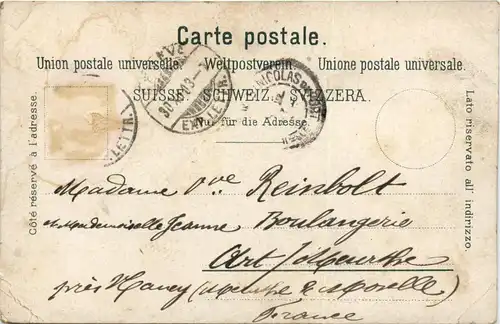 Carte postale.
Union postale universelle. Weltpostverein. Unione postale universale.
SUISSE. SCHWEIZ. SVIZZERA.
Nur für die Adresse.
Côté réservé à l'adresse.
Lato riservato all' indirizzo.
LETTR.
EXP. LETTR.
NICOLAS DU PORT
Madame Vve Reinbolt
et Mademoiselle Jeanne Boulangerie
Art/Meurthe
près Nancy (Meurthe & Moselle)
France